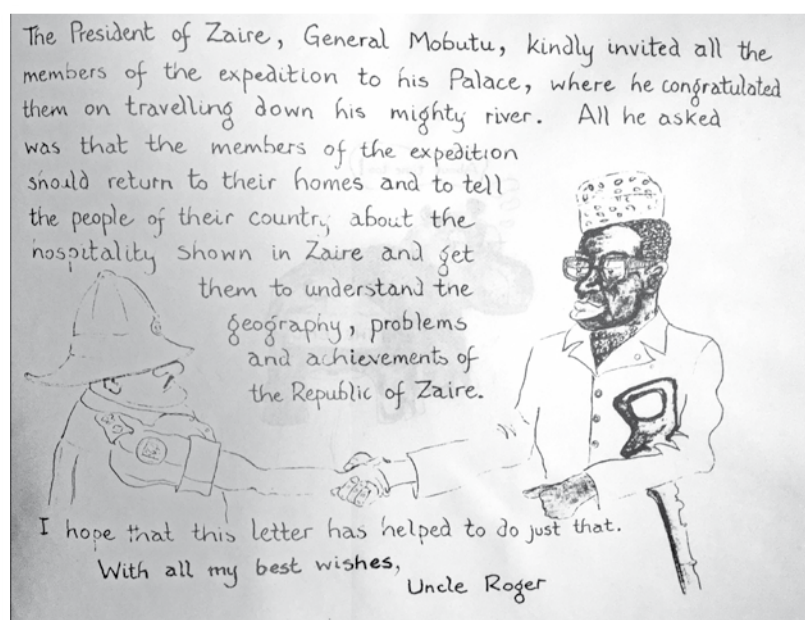 The President of Zaire, General Mobutu, kindly invited all the
members of the expedition to his Palace, where he congratulated
them on travelling down his mighty river. All he asked
was that the members of the expedition
should return to their homes and to tell
the people of their country about the
hospitality shown in Zaire and get
them to understand the
geography, problems
and achievements of
the Republic of Zaire.
I hope that this letter has helped to do just that.
With all my best wishes,
Uncle Roger